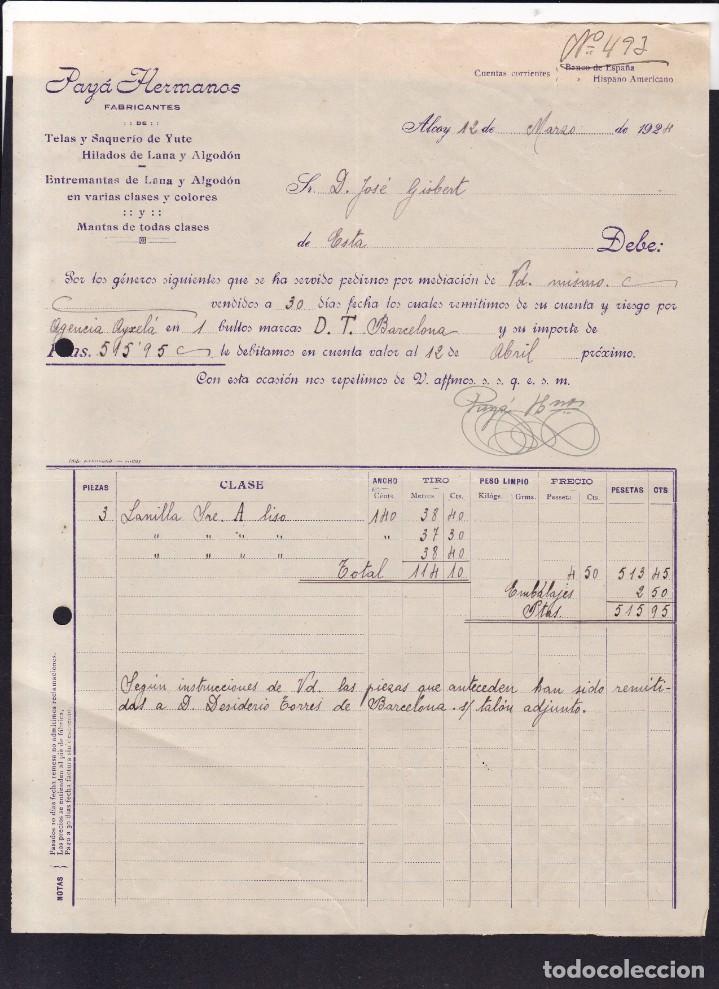 Nº 493
Cuentas corrientes Banco de España
» Hispano Americano
Payá Hermanos
FABRICANTES
:: DE ::
Telas y Saquerío de Yute
Hilados de Lana y Algodón
Entremantas de Lana y Algodón
en varias clases y colores
:: y ::
Mantas de todas clases
Alcoy 12 de Marzo de 1924
Sr. D. José Gisbert
de Esta Debe:
Por los géneros siguientes que se ha servido pedirnos por mediación de Vd. mismo.
vendidos a 30 días fecha los cuales remitimos de su cuenta y riesgo por
Agencia Ayxelá en 1 bultos marcas D. T. Barcelona y su importe de
Ptas. 515'95 le debitamos en cuenta valor al 12 de Abril próximo.
Con esta ocasión nos repetimos de V. affmos. s. s. q. e. s. m.
Payá Hnos
PIEZAS CLASE ANCHO TIRO PESO LIMPIO PRECIO PESETAS CTS
Cénts. Metros Cts. Kilógs. Grms. Peseta Cts.
3 Lanilla Sre. A liso 140 38 40
" " " " " 37 30
" " " " 38 40
Total 114 10 4 50 513 45
Embalajes 2 50
Ptas. 515 95
Según instrucciones de Vd. las piezas que anteceden han sido remiti-
das a D. Desiderio Torres de Barcelona s/ talón adjunto.
NOTAS
Pasados 10 días fecha remesa no admitimos reclamaciones.
Los precios se entienden al pie de fábrica.
Pago a 30 días fecha factura sin descuento.
todocoleccion.net